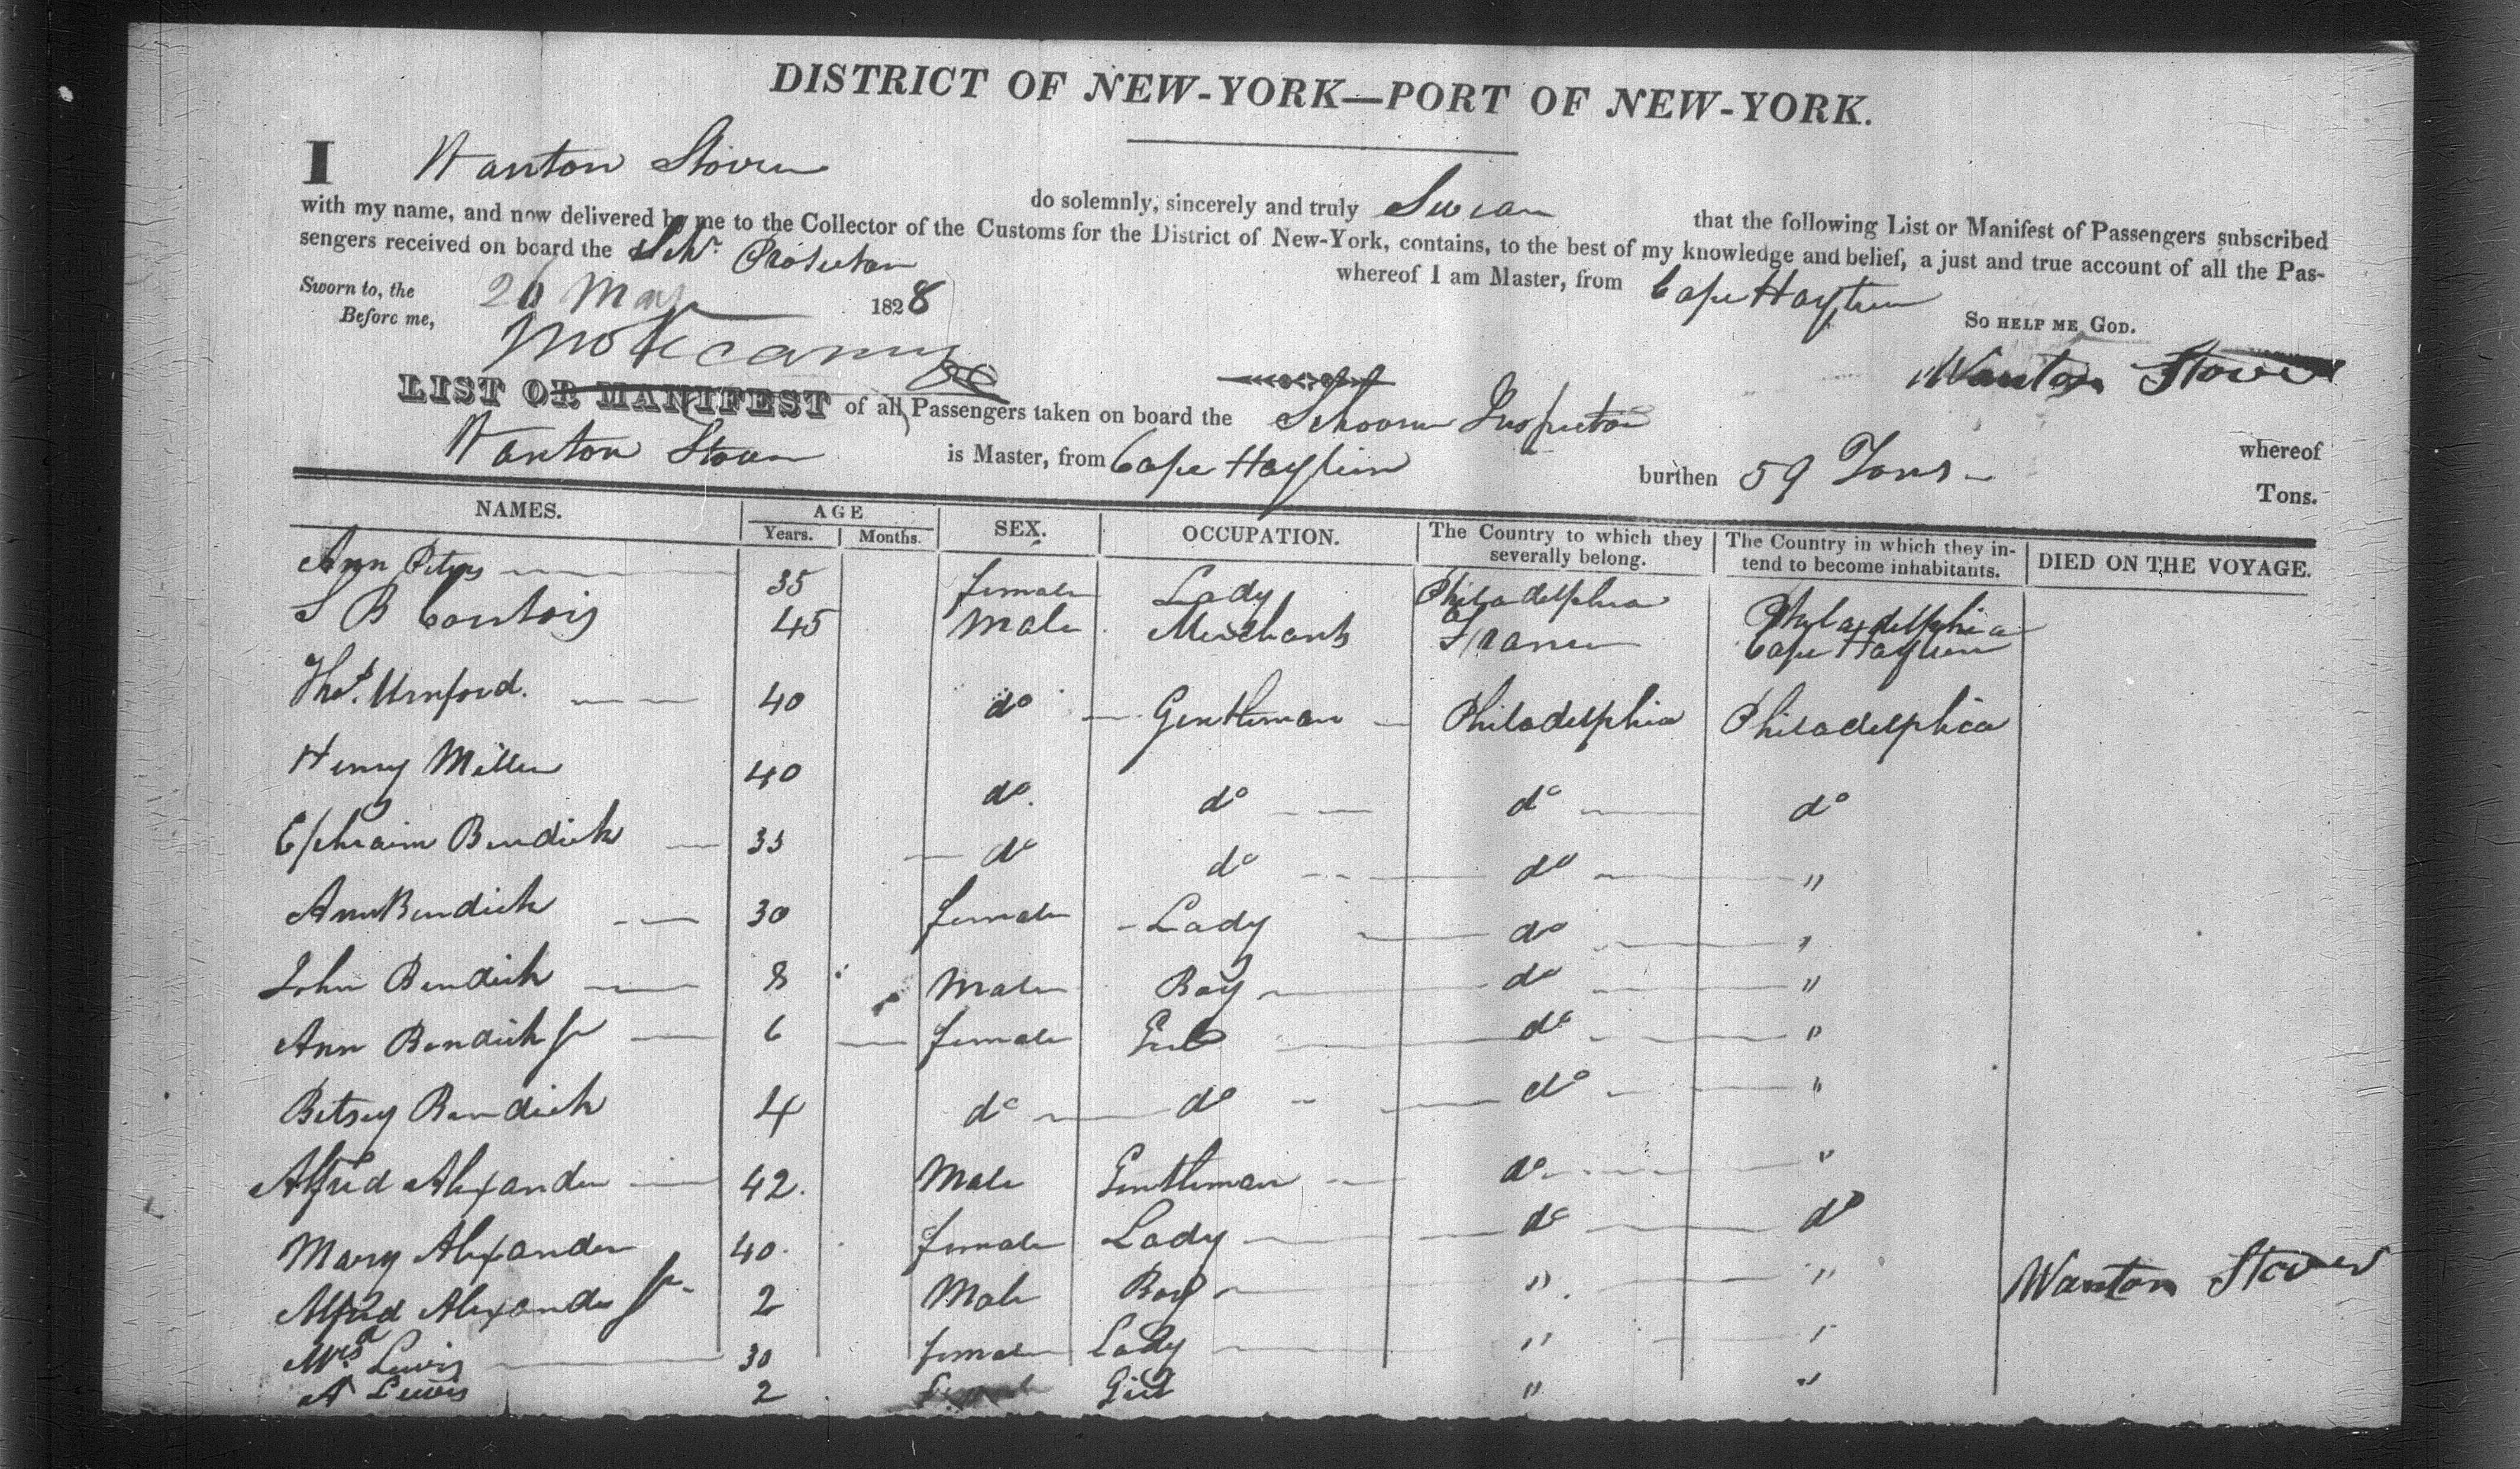 DISTRICT OF NEW-YORK—PORT OF NEW-YORK.
I Wanton Stover do solemnly, sincerely and truly Swear that the following List or Manifest of Passengers subscribed
with my name, and now delivered by me to the Collector of the Customs for the District of New-York, contains, to the best of my knowledge and belief, a just and true account of all the Pas-
sengers received on board the Schr. whereof I am Master, from Cape Haytien
Sworn to, the 26 May 1828
Before me,
SO HELP ME GOD.
Wanton Stover
LIST OR MANIFEST of all Passengers taken on board the Schooner Inspector whereof
Wanton Stover is Master, from Cape Haytien burthen 59 Tons Tons.
NAMES. AGE SEX. OCCUPATION. The Country to which they severally belong. The Country in which they in-tend to become inhabitants. DIED ON THE VOYAGE.
Years. Months.
Ann Peters 35 female Lady Philadelphia Phyladelphia
S B Contois 45 Male Merchant France Cape Haytien
Thos. Urnford. 40 do Gentleman Philadelphia Philadelphia
Henry Miller 40 do. do do do
Ephraim Bendick 35 do do do "
Ann Bendick 30 female Lady do "
John Bendick 8 Male Boy do "
Ann Bendick Jr 6 female Girl do "
Betsey Bendick 4 do do do "
Alfred Alexander 42. Male Gentleman do "
Mary Alexander 40. female Lady do do
Alfred Alexander Jr 2 Male Boy " "
Mrs. Lewis 30 female Lady " "
A Lewis 2 Girl " "
Wanton Stover